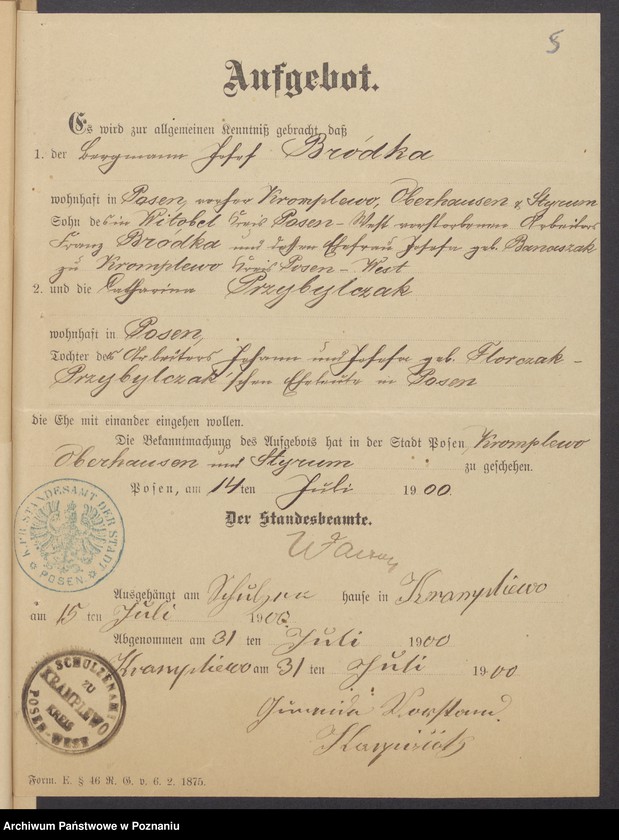 8
Aufgebot.
Es wird zur allgemeinen Kenntniß gebracht, daß
1. der Bergmann Josef Bródka
wohnhaft in Posen, vorher Kromplewo, Oberhausen & Styrum
Sohn des in Witobel Kreis Posen-West verstorbenen Arbeiters
Franz Bródka und dessen Ehefrau Josefa geb. Banaszak
zu Kromplewo Kreis Posen-West
2. und die Catharina Przybylczak
wohnhaft in Posen,
Tochter des Arbeiters Johann und Josefa geb. Florczak-
Przybylczak'schen Eheleute in Posen
die Ehe mit einander eingehen wollen.
Die Bekanntmachung des Aufgebots hat in der Stadt Posen, Kromplewo
Oberhausen und Styrum zu geschehen.
Posen, am 14ten Juli 1900.
Der Standesbeamte.
K. PR. STANDESAMT DER STADT POSEN.
Ausgehängt am Schulzen hause in Krampliewo
am 15 ten Juli 1900
Abgenommen am 31 ten Juli 1900
Krampliewo am 31 ten Juli 1900
SCHULZENAMT ZU KRAMPLEWO KREIS POSEN-WEST
Vorstand.
Form. E. § 46 R. G. v. 6. 2. 1875.
Archiwum Państwowe w Poznaniu